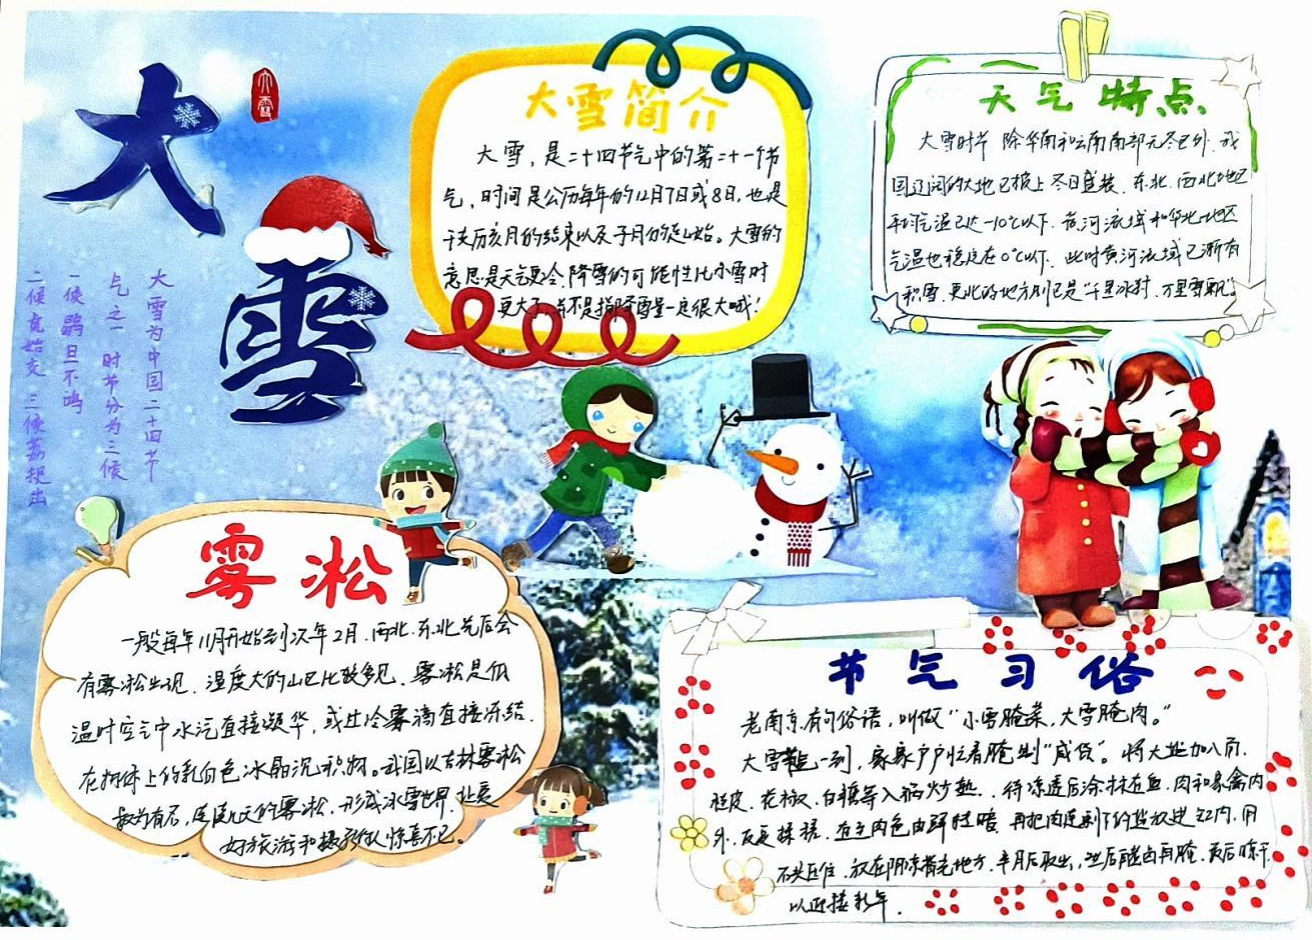 大雪
大雪
大雪为中国二十四节
气之一 时节分为三候
一候鹖旦不鸣
二候虎始交 三候荔挺出
大雪简介
大雪，是二十四节气中的第二十一个节
气，时间是公历每年的12月7日或8日，也是
干支历亥月的结束以及子月的起始。大雪的
意思是天气更冷，降雪的可能性比小雪时
更大了，并不是指降雪量一定很大哦！
天气特点
大雪时节 除华南和云南南部无冬区外，我
国辽阔的大地已披上冬日盛装，东北、西北地区
平均气温已达-10℃以下，黄河流域和华北地区
气温也稳定在0℃以下，此时黄河流域已渐有
积雪，更北的地方则已是“千里冰封，万里雪飘”
雾凇
一般每年11月开始到次年2月，西北、东北先后会
有雾凇出现，湿度大的山区比较多见，雾凇是低
温时空气中水汽直接凝华，或过冷雾滴直接冻结，
在物体上的乳白色冰晶沉积物。我国以吉林雾凇
最为有名，连续几天的雾凇，形成冰雪世界，让爱
好旅游和摄影的人惊喜不已。
节气习俗
老南京有句俗语，叫做“小雪腌菜，大雪腌肉。”
大雪节气一到，家家户户忙着腌制“咸货”。将大盐加八角、
桂皮、花椒、白糖等入锅炒熟，待凉透后涂抹在鱼、肉和家禽内
外，反复揉搓，直到肉色由鲜转暗，再把肉连剩下的盐放进缸内，用
石头压住，放在阴凉背光地方，半月后取出，
以迎接新年。